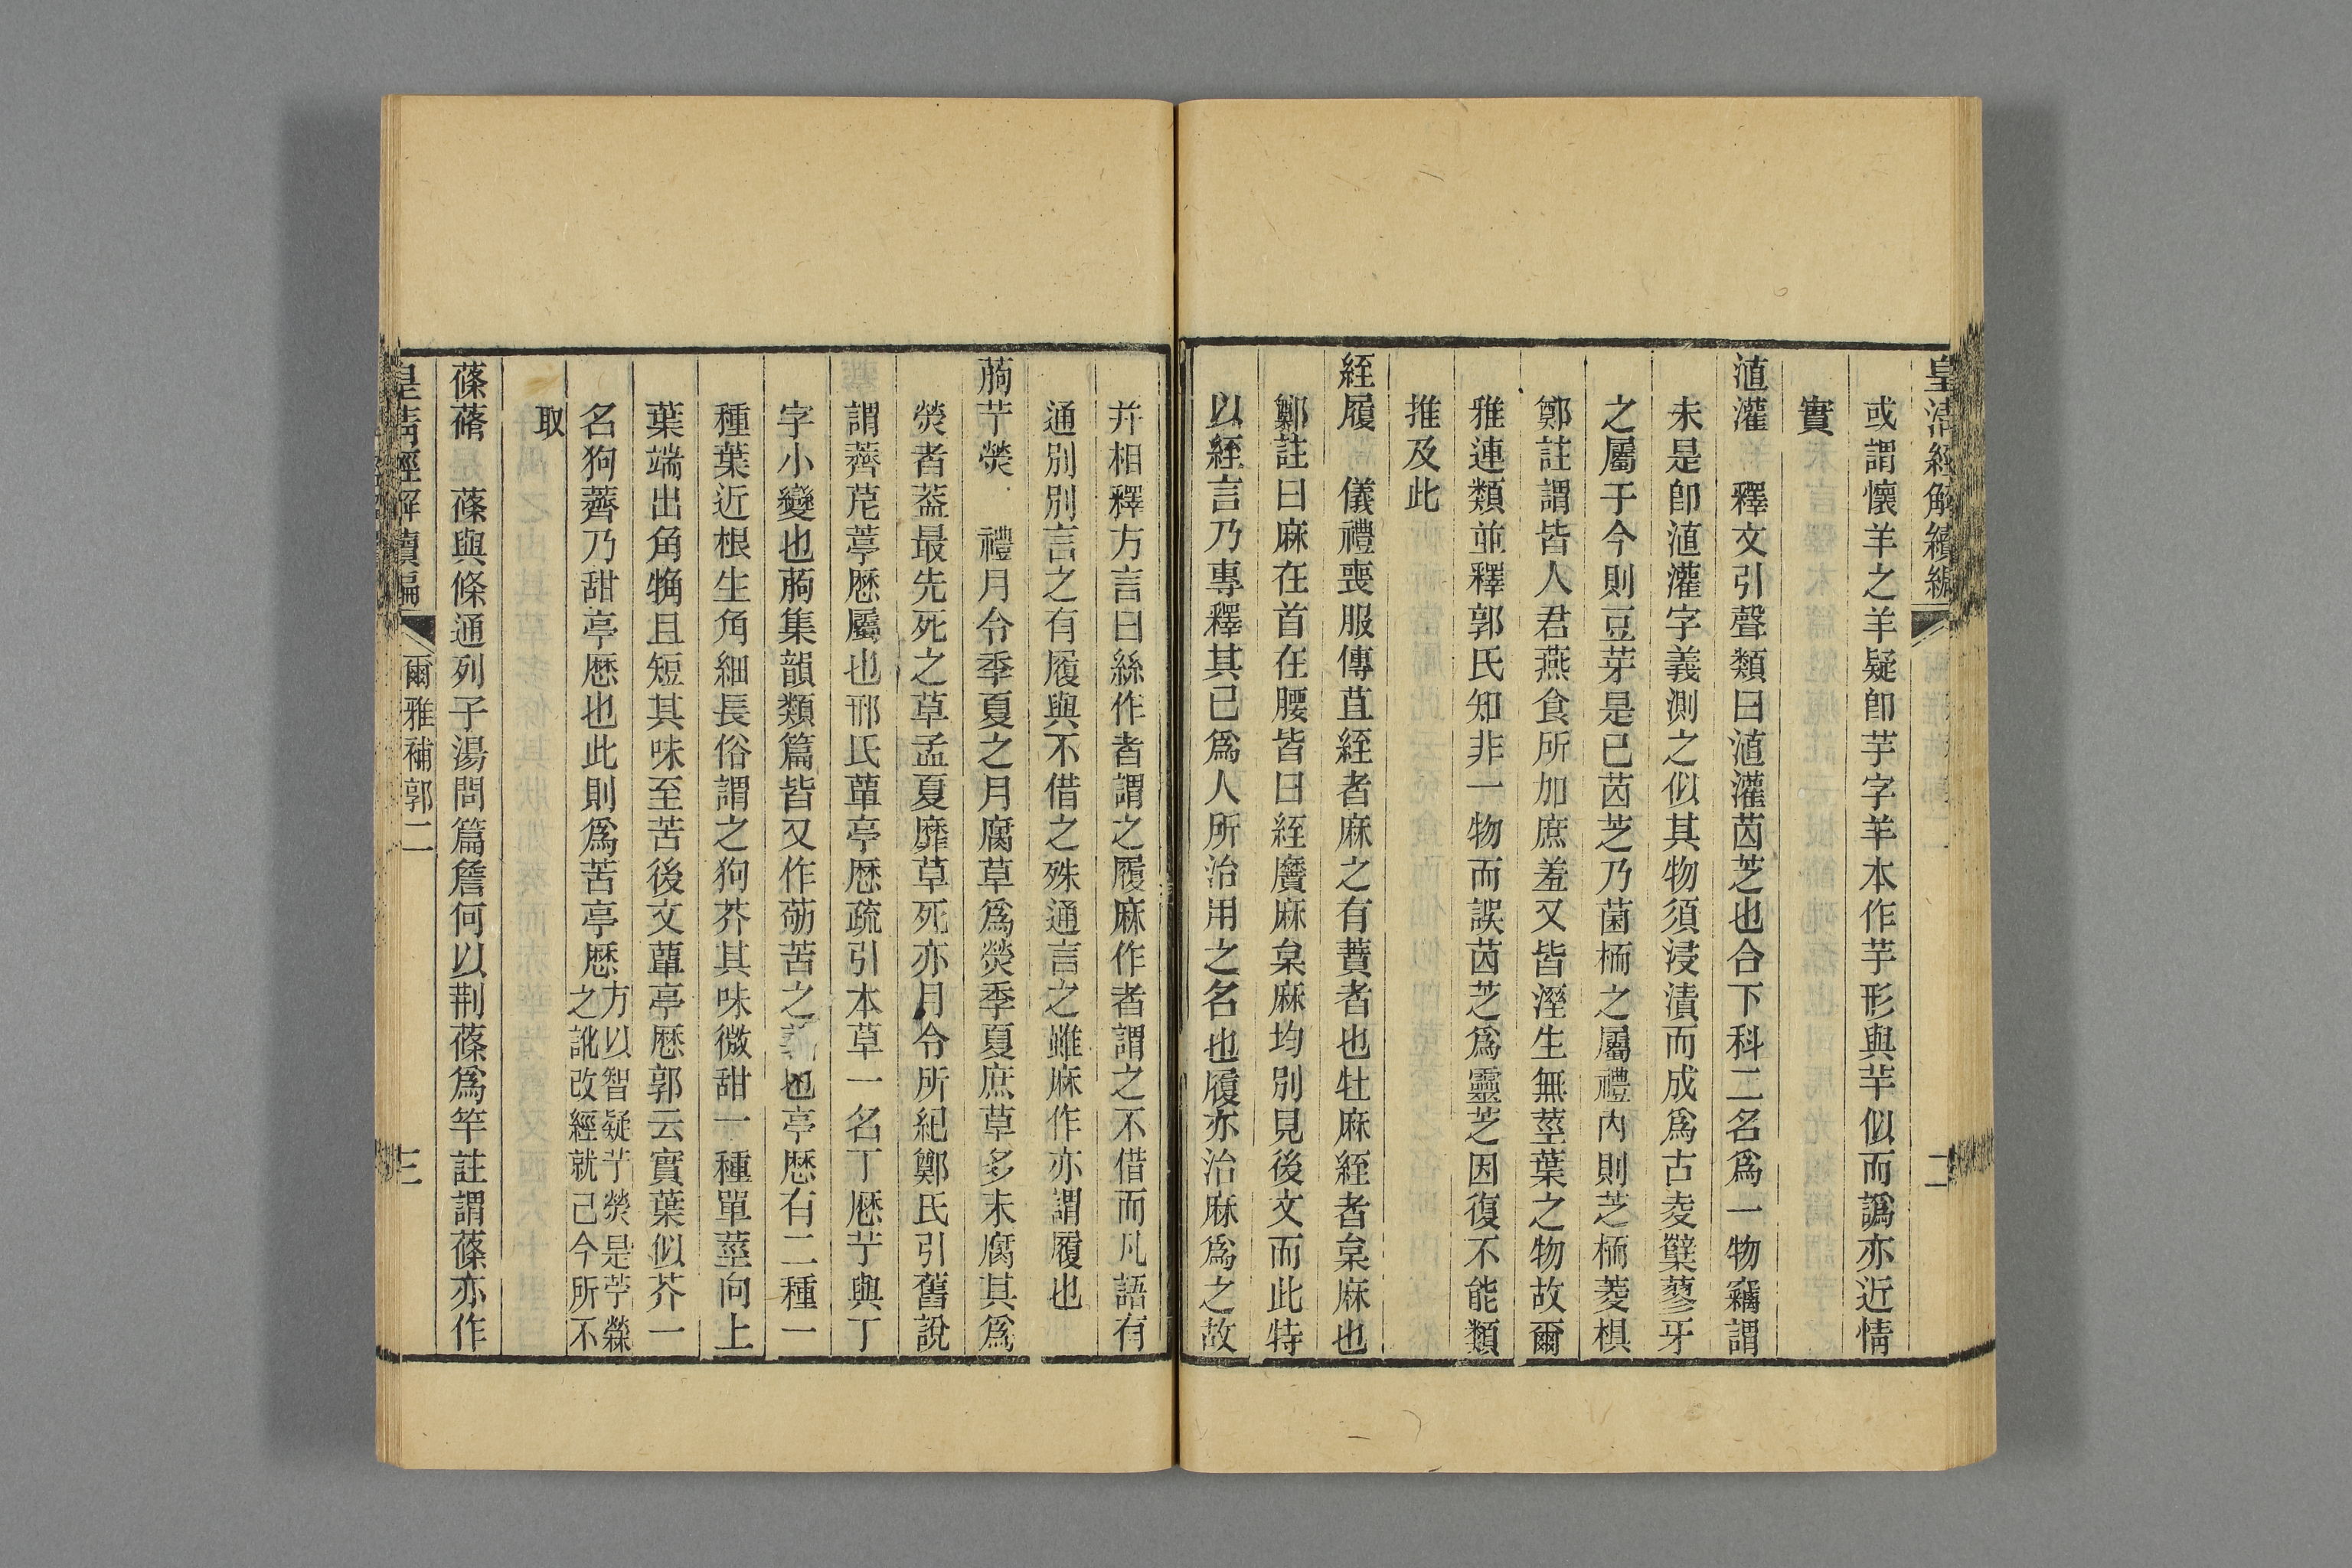 皇清經解續編 二
或謂懷羊之羊疑卽芋字羊本作芋形與芋似而譌亦近情
實
淔灌 釋文引聲類曰淔灌茵芝也合下科二名爲一物竊謂
未是卽淔灌字義測之似其物須浸漬而成爲古夌糱蓼牙
之屬于今則豆芽是已茵芝乃菌栭之屬禮內則芝栭蔆椇
鄭註謂皆人君燕食所加庶羞又皆溼生無莖葉之物故爾
雅連類並釋郭氏知非一物而誤茵芝爲靈芝因復不能類
推及此
絰履 儀禮喪服傳苴絰者麻之有蕡者也牡麻絰者枲麻也
鄭註曰麻在首在腰皆曰絰黂麻枲麻均別見後文而此特
以絰言乃專釋其已爲人所治用之名也履亦治麻爲之故
并相釋方言曰絲作者謂之履麻作者謂之不借而凡語有
通別別言之有履與不借之殊通言之雖麻作亦謂履也
蕱芐熒 禮月令季夏之月腐草爲熒季夏庶草多未腐其爲
熒者葢最先死之草孟夏靡草死亦月令所紀鄭氏引舊說
謂薺苨葶歷屬也邢氏蕇亭歷疏引本草一名丁歷芐與丁
字小變也蕱集韻類篇皆又作莮苦之也亭歷有二種一
種葉近根生角細長俗謂之狗芥其味微甜一種單莖向上
葉端出角觕且短其味至苦後文蕇亭歷郭云實葉似芥一
名狗薺乃甜亭歷也此則爲苦亭歷方以智疑芐熒是苧𦾵
之訛改經就己今所不
取
蓧蓨 蓧與條通列子湯問篇詹何以荆蓧爲竿註謂蓧亦作
皇清經解續編 爾雅補郭二 三